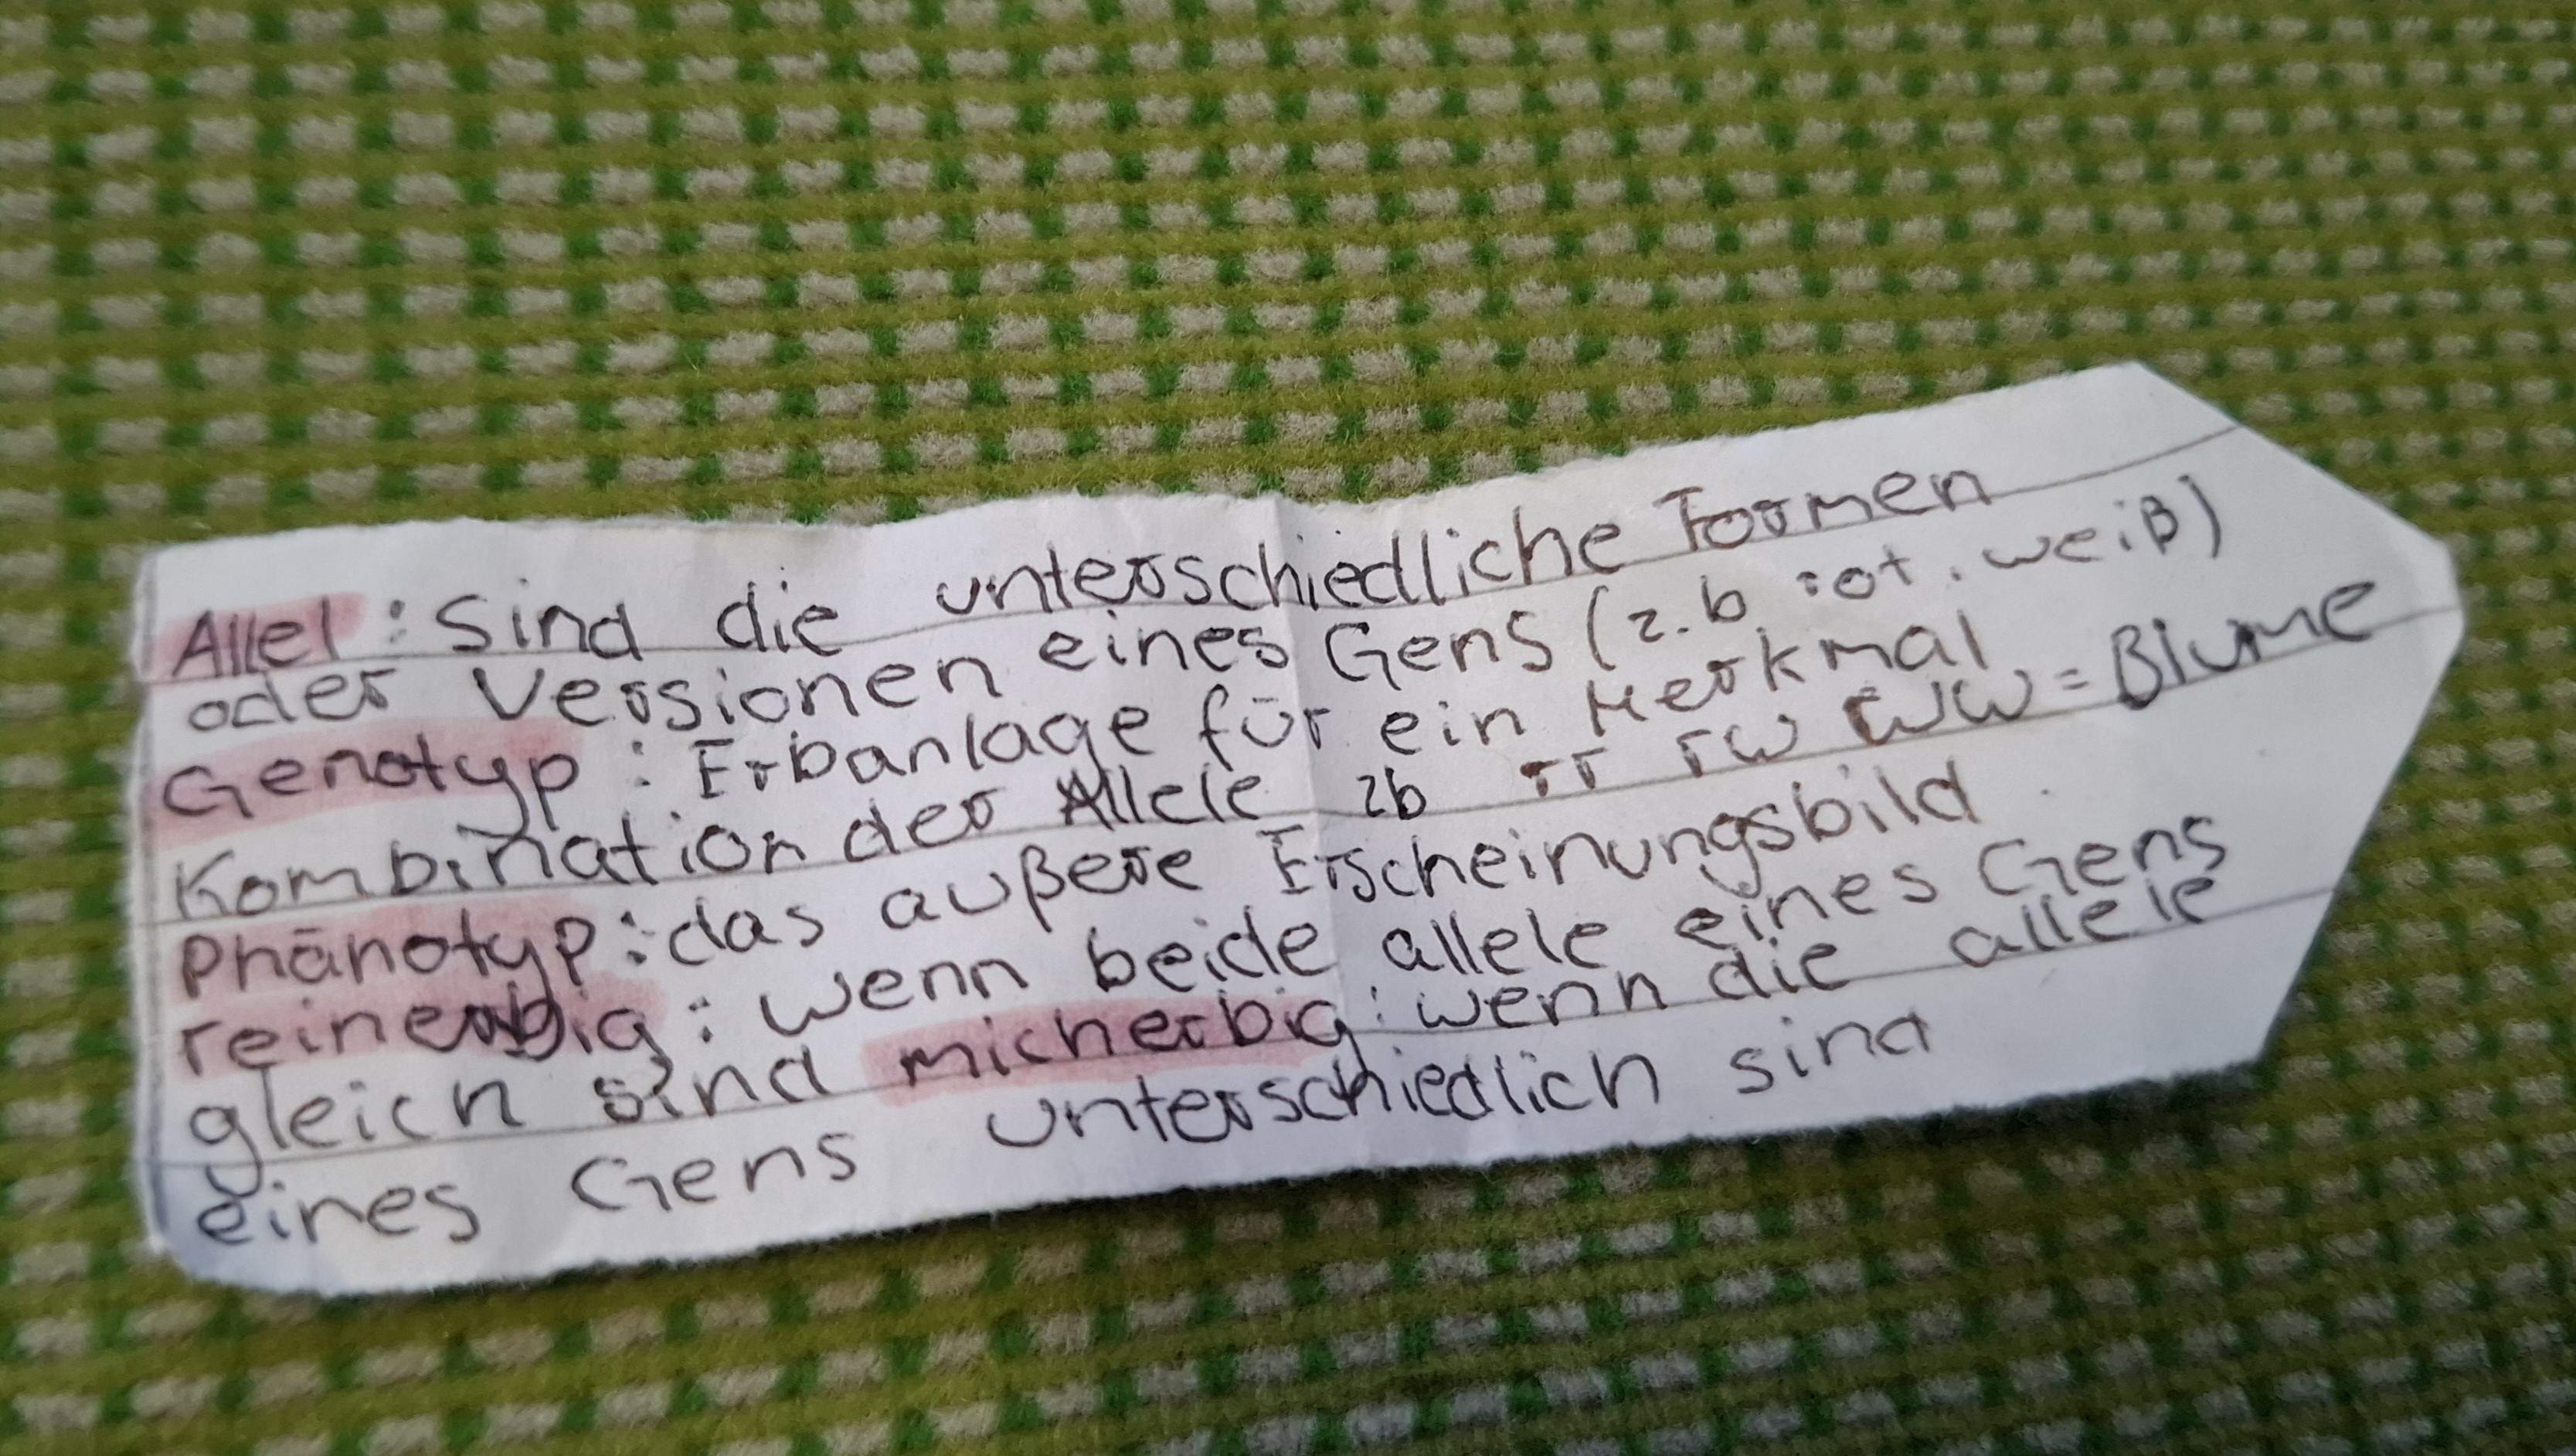 Allel: Sind die unterschiedliche Formen
oder Versionen eines Gens (z.b rot. weiß)
Genotyp: Erbanlage für ein Merkmal
Kombination der Allele zb rr rw ww = Blume
Phänotyp: das außere Erscheinungsbild
reinerbig: wenn beide allele eines Gens
gleich sind micherbig: wenn die allele
eines Gens unterschiedlich sind